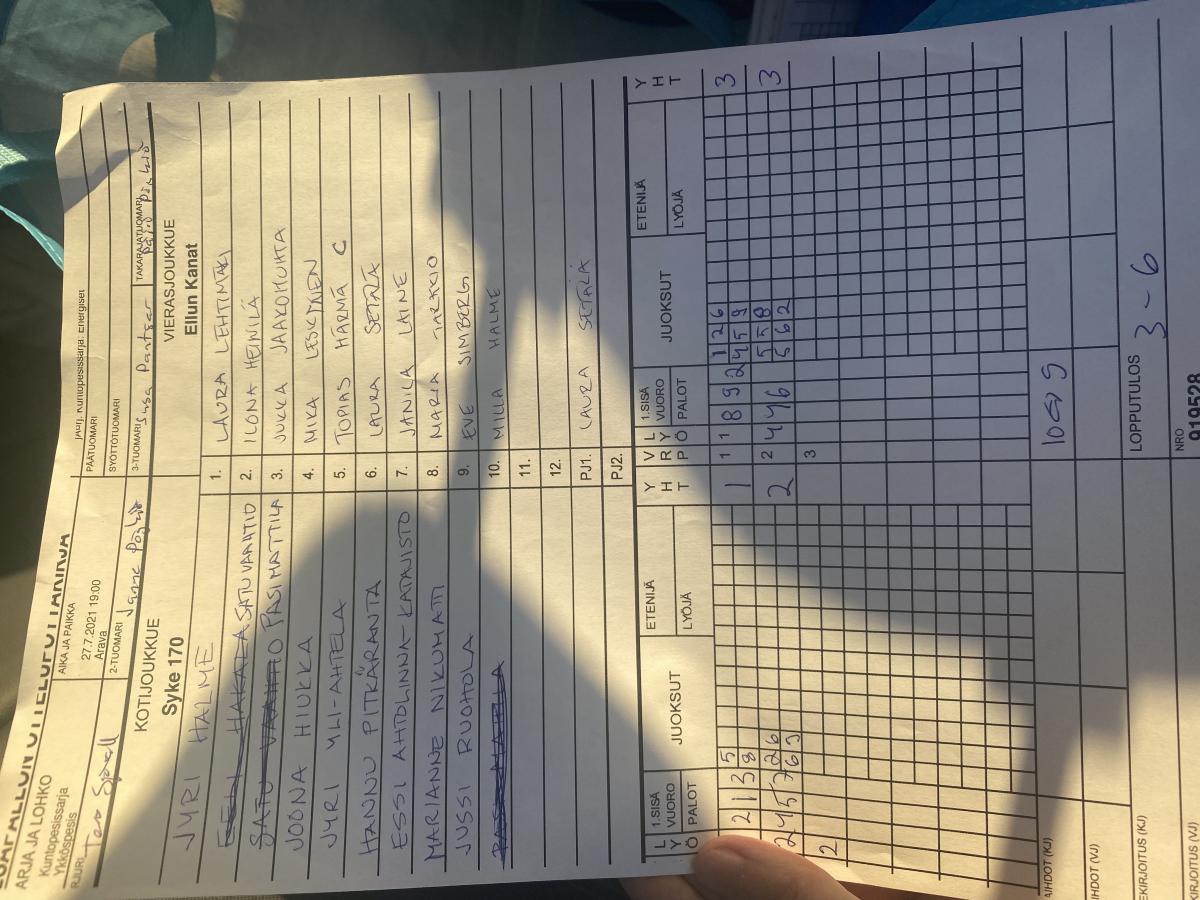 SUPERPALLON OTTELUPÖYTÄKIRJA
ARJA JA LOHKO
Kuntopesissarja
Ykköspesis
AIKA JA PAIKKA
27.7.2021 19:00
Arava
PÄÄTUOMARI
SYÖTTÖTUOMARI
RJURI
2-TUOMARI Janne
3-TUOMARI Susa
TAKARAJATUOMARI
KOTIJOUKKUE
Syke 170
VIERASJOUKKUE
Ellun Kanat
JYRI HALME 1. LAURA LEHTIMÄKI
SATU VAAHTIO 2. ILONA HEINILÄ
PASI MATTILA 3. JUKKA JAAKOHUHTA
JOONA HIUKKA 4. MIKA LESKINEN
JYRI YLI-AHTELA 5. TOPIAS HÄRMÄ C
HANNU PITKÄRANTA 6. LAURA SETÄLÄ
ESSI AHDLINNA-KATAJISTO 7. JANIKA LAINE
MARIANNE NIKUMATTI 8. MARIA TARKIO
JUSSI RUOHOLA 9. EVE SIMBERG
10. MILLA HALME
11.
12.
PJ1. LAURA SETÄLÄ
PJ2.
L Y Ö 1.SISÄ VUORO PALOT JUOKSUT ETENIJÄ LYÖJÄ YHT VRP LYÖ 1.SISÄ VUORO PALOT JUOKSUT ETENIJÄ LYÖJÄ YHT
2 1 3 5 1 1 1 8 9 2 1 2 6 3
8 4 5 9
2 4 5 7 2 6 2 2 4 4 6 5 5 8 3
6 3 5 6 2
2 3
AIHDOT (KJ)
AIHDOT (VJ)
EKIRJOITUS (KJ)
LOPPUTULOS 3 - 6
KIRJOITUS (VJ)
NRO
919528